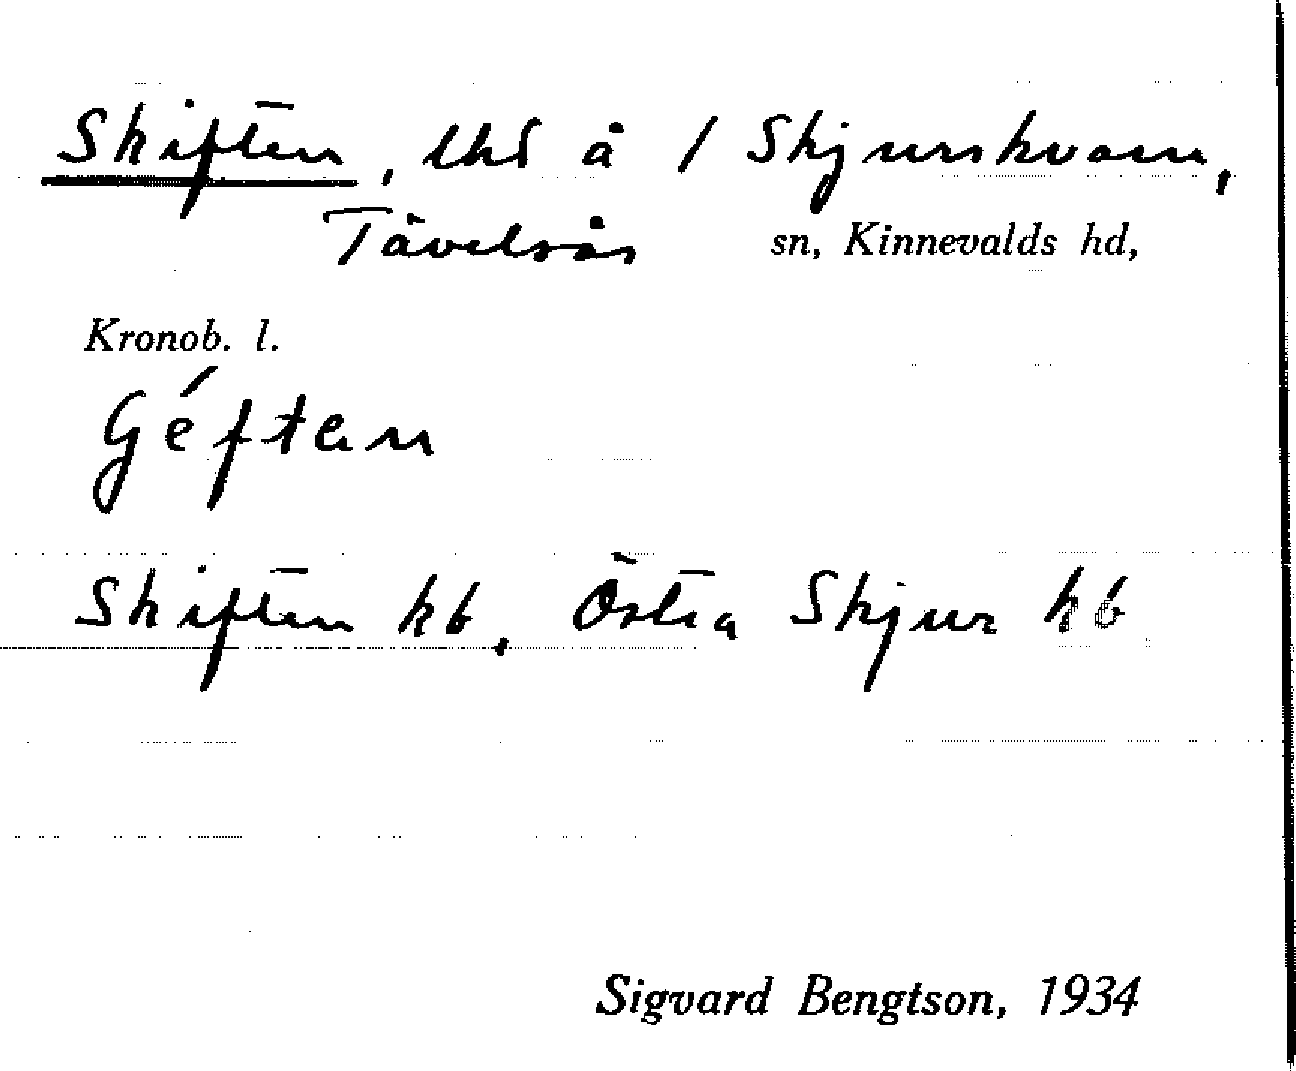 Skiften, lhd å 1 Skjurskvarn,
Tävelsås sn, Kinnevalds hd,
Kronob. l.
Géftan
Skiften kb, Östra Skjur kb
Sigvard Bengtson, 1934